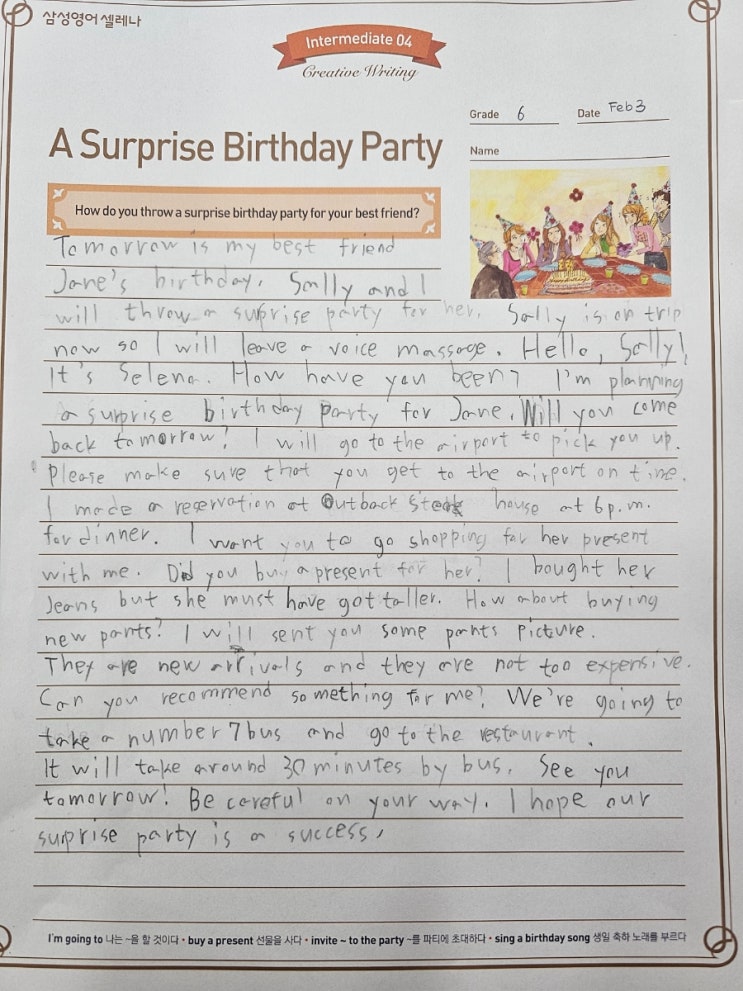 삼성영어 셀레나
Intermediate 04
Creative Writing
Grade 6 Date Feb 3
A Surprise Birthday Party
Name
How do you throw a surprise birthday party for your best friend?
Tomorrow is my best friend
Jane's birthday. Sally and I
will throw a surprise party for her. Sally is on trip
now so I will leave a voice massage. Hello, Sally!
It's Selena. How have you been? I'm planning
a surprise birthday party for Jane. Will you come
back tomorrow? I will go to the airport to pick you up.
Please make sure that you get to the airport on time.
I made a reservation at Outback Steak house at 6 p.m.
for dinner. I want you to go shopping for her present
with me. Did you buy a present for her? I bought her
Jeans but she must have got taller. How about buying
new pants? I will sent you some pants picture.
They are new arrivals and they are not too expensive.
Can you recommend something for me? We're going to
take a number 7 bus and go to the restaurant.
It will take around 30 minutes by bus. See you
tomorrow! Be careful on your way. I hope our
surprise party is a success.
I'm going to 나는 ~을 할 것이다 • buy a present 선물을 사다 • invite ~ to the party ~를 파티에 초대하다 • sing a birthday song 생일 축하 노래를 부르다